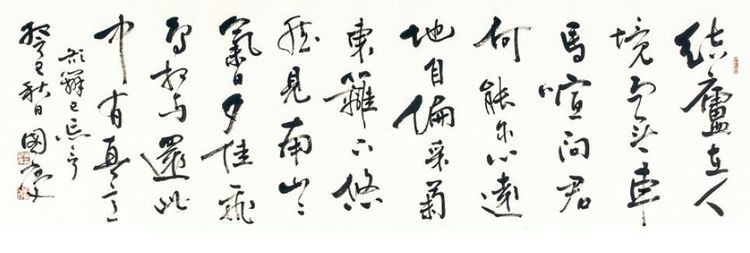 結廬在人
境而無車
馬喧問君
何能尔心遠
地自偏采菊
東籬下悠
然見南山〻
氣日夕佳飛
鳥相与還此
中有真意
欲辨已忘言
癸巳秋日國